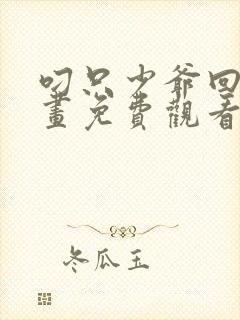 叼只少爺回
畫免費觀看
冬瓜玉